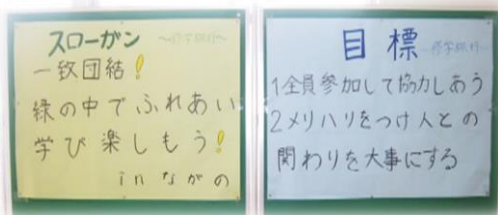 スローガン ～修学旅行～
一致団結!
緑の中でふれあい
学び楽しもう!
inながの
目標 ～修学旅行～
1全員参加して協力しあう
2メリハリをつけ人との
関わりを大事にする